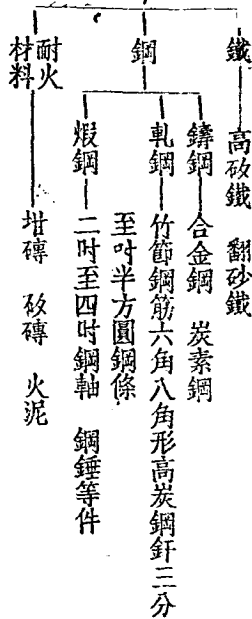 鐵
高矽鐵 翻砂鐵
鋼
鑄鋼
合金鋼 炭素鋼
軋鋼
竹節鋼筋六角八角形高炭鋼釺三分
至吋半方圓鋼條
煅鋼
二吋至四吋鋼軸 鋼錘等件
耐火
材料
坩磚 矽磚 火泥